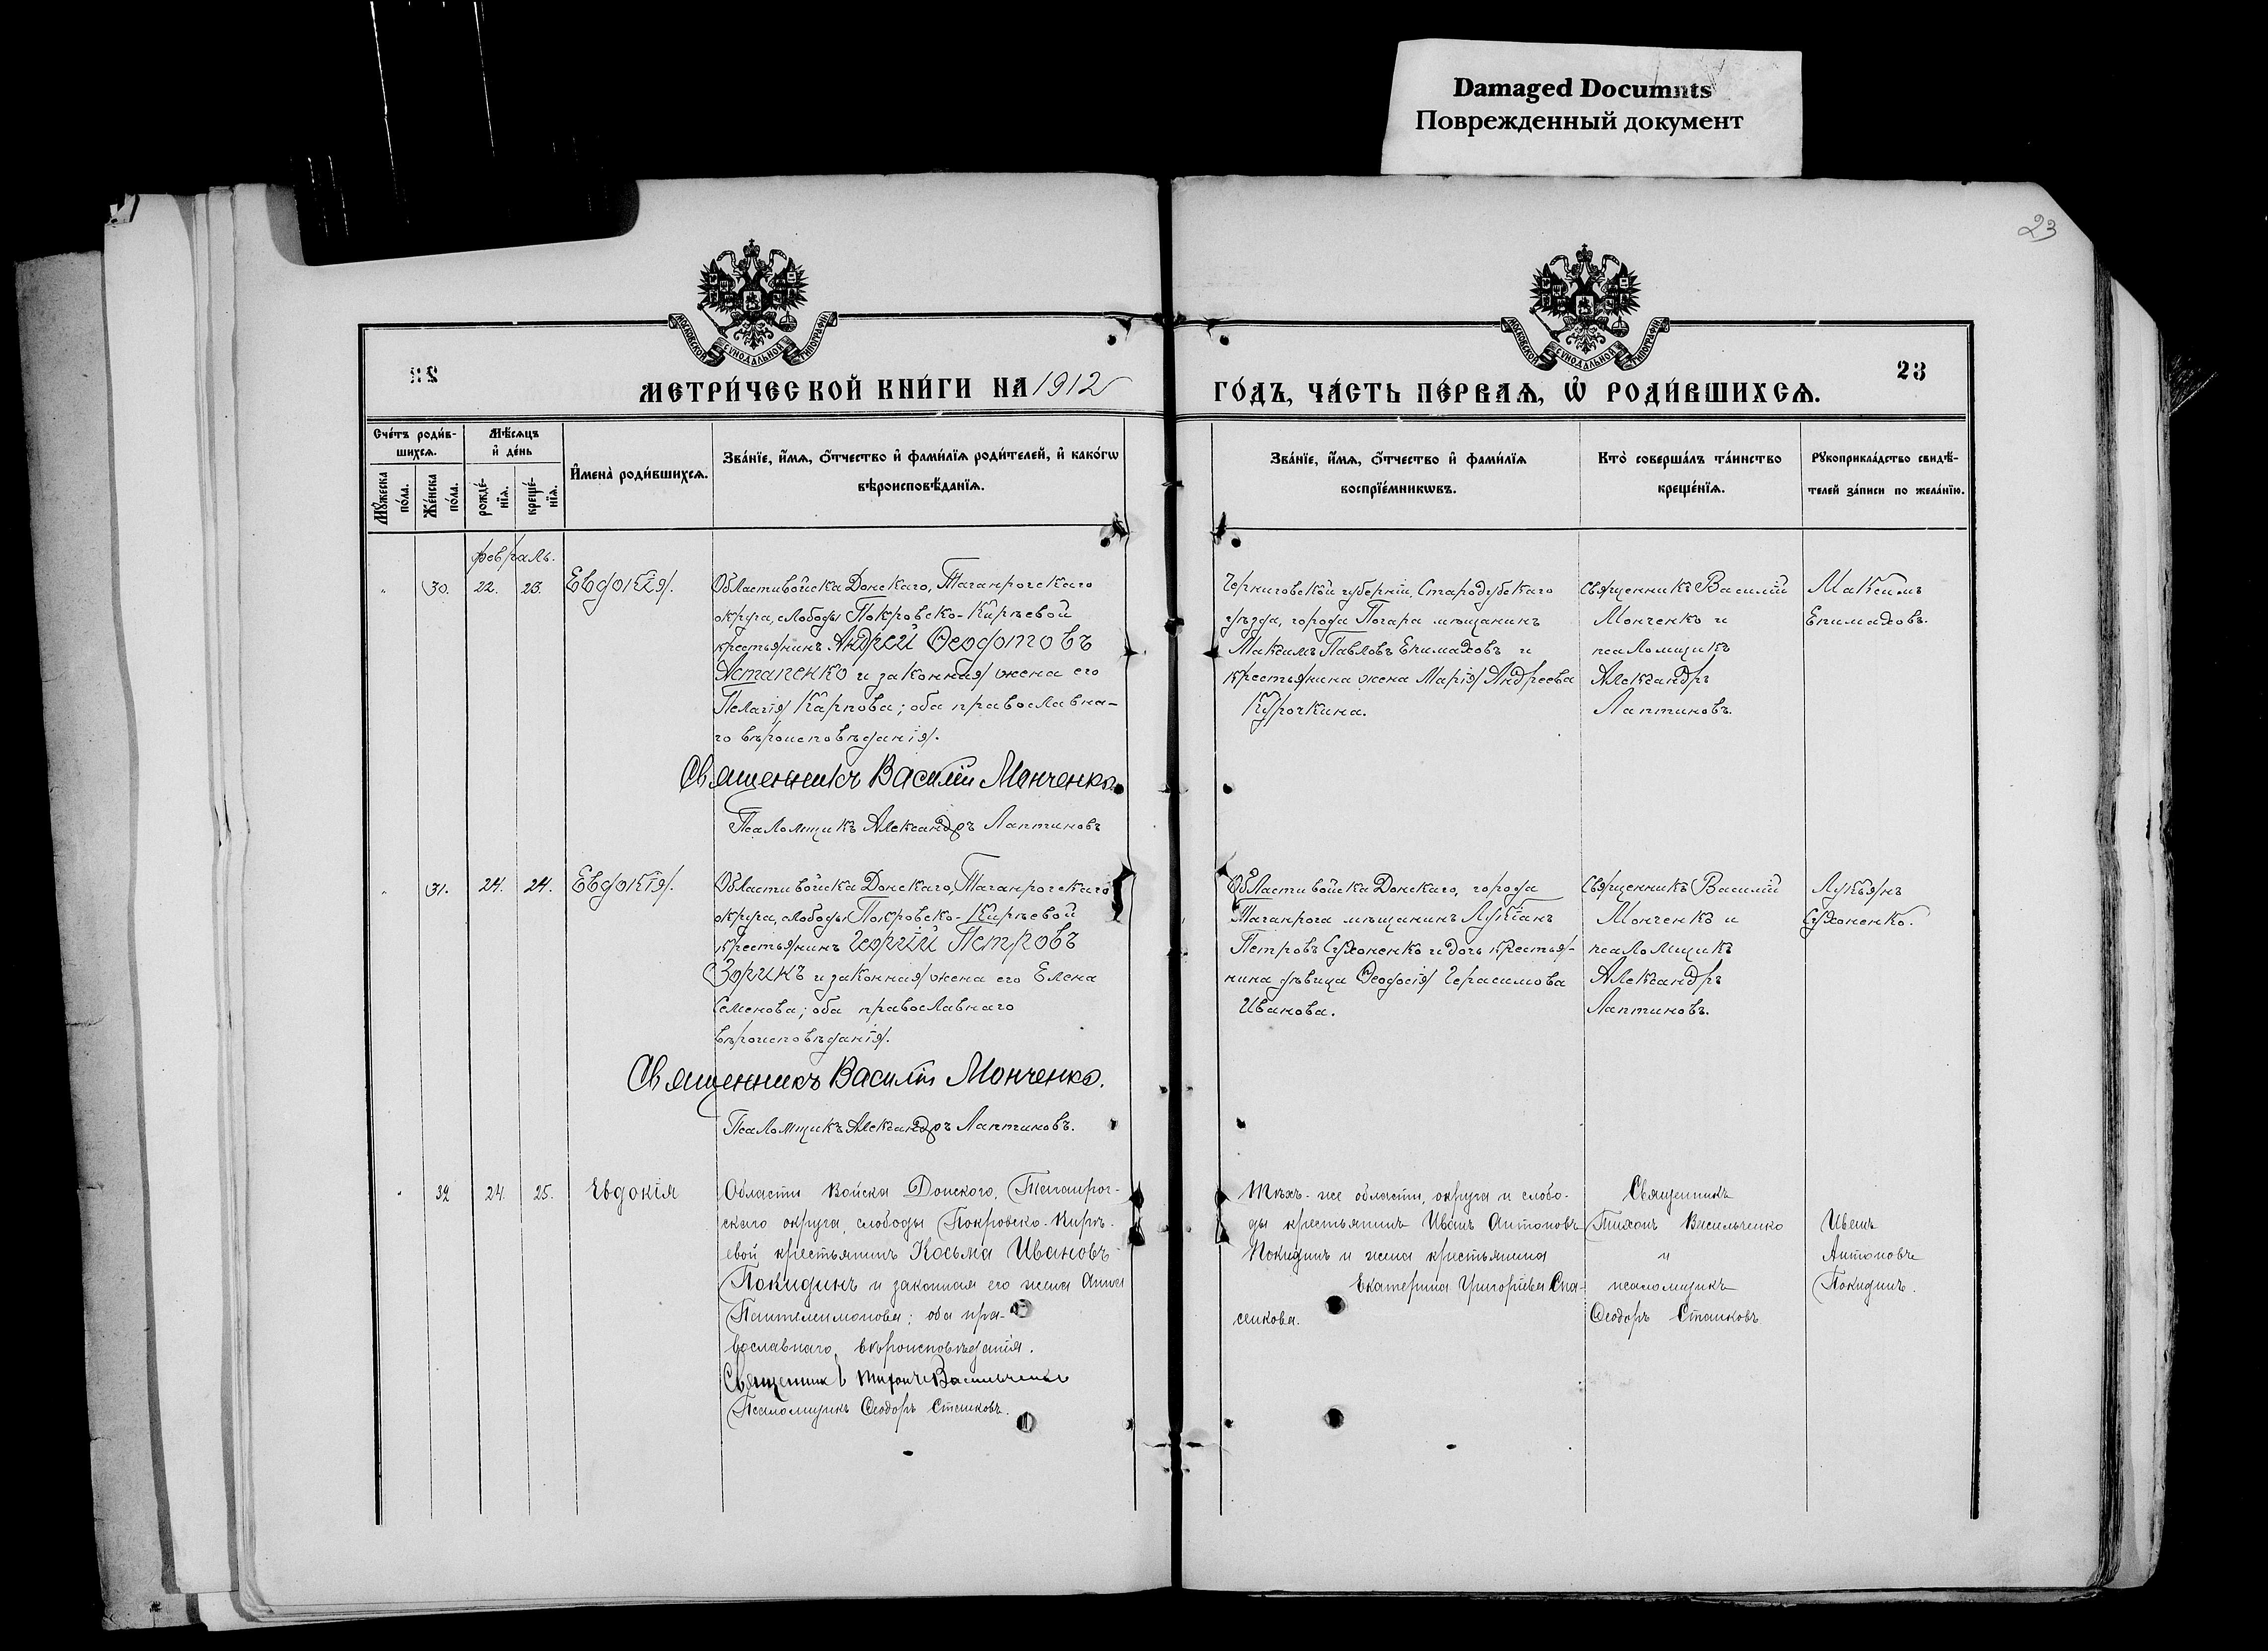 Damaged Documnts
Поврежденный документ
23
МОСКОВСКОЙ СѴНОДАЛЬНОЙ ТИПОГРАФІИ
МОСКОВСКОЙ СѴНОДАЛЬНОЙ ТИПОГРАФІИ
23
МЕТРИ́ЧЕСКОЙ КНИ́ГИ НА 1912
ГО́ДЪ, ЧА́СТЬ ПЕ́РВАѦ, Ѽ РОДИ́ВШИХСѦ.
Сче́тъ роди́в-
шихсѧ.
Мꙋ́жеска
по́ла.
Же́нска
по́ла.
Мѣ́сѧцъ
и҆ де́нь
рожде́-
нїѧ.
креще́-
нїѧ.
И҆мена̀ роди́вшихсѧ.
Зва́нїе, и҆́мѧ, ѻ҆́тчество и҆ фами́лїѧ роди́телей, и҆ како́гѡ
вѣроисповѣ́данїѧ.
Зва́нїе, и҆́мѧ, ѻ҆́тчество и҆ фами́лїѧ
воспрїе́мникѡвъ.
Кто̀ соверша́лъ та́инство
креще́нїѧ.
Рꙋкоприкла́дство свидѣ́-
телей за́писи по жела́нїю.
февраль.
" 30. 22. 23. Евдокія.
Области войска Донскаго, Таганрогскаго
округа, слободы Покровско-Кирѣевой
крестьянинъ Андрей Ѳеодотовъ
Астапенко и законная жена его
Пелагія Карпова; оба православна-
го вѣроисповѣданія.
Священникъ Василій Монченко.
Псаломщикъ Александръ Лаптиновъ
Черниговской губерніи, Стародубскаго
уѣзда, города Погара мѣщанинъ
Максимъ Павловъ Епимаховъ и
крестьянина жена Марія Андреева
Курочкина.
Священникъ Василій
Монченко и
псаломщикъ
Александръ
Лаптиновъ.
Максимъ
Епимаховъ.
" 31. 24. 24. Евдокія.
Области войска Донскаго, Таганрогскаго
округа, слободы Покровско-Кирѣевой
крестьянинъ Георгій Петровъ
Зорикъ и законная жена его Елена
Семенова; оба православнаго
вѣроисповѣданія.
Священникъ Василій Монченко.
Псаломщикъ Александръ Лаптиновъ.
Области войска Донскаго, города
Таганрога мѣщанинъ Лукіанъ
Петровъ Сухоненко и дочь крестья-
нина дѣвица Ѳеодосія Герасимова
Иванова.
Священникъ Василій
Монченко и
псаломщикъ
Александръ
Лаптиновъ.
Лукьянъ
Сухоненко.
" 32 24. 25. Евдокія
Области Войска Донского, Таганрог-
скаго округа, слободы Покровско-Кирѣ-
евой крестьянинъ Косьма Ивановъ
Покидинъ и законная его жена Анна
Пантелеимонова; оба пра-
вославнаго вѣроисповѣданія.
Священникъ Тихонъ Васильченко
Псаломщикъ Ѳеодоръ Станковъ.
Тѣхъ-же области, округа и слобо-
ды крестьянинъ Иванъ Антоновъ
Покидинъ и жена крестьянина
Екатерина Григорьева Спа-
сенкова.
Священникъ
Тихонъ Васильченко
и
псаломщикъ
Ѳеодоръ Станковъ
Иванъ
Антоновъ
Покидинъ.